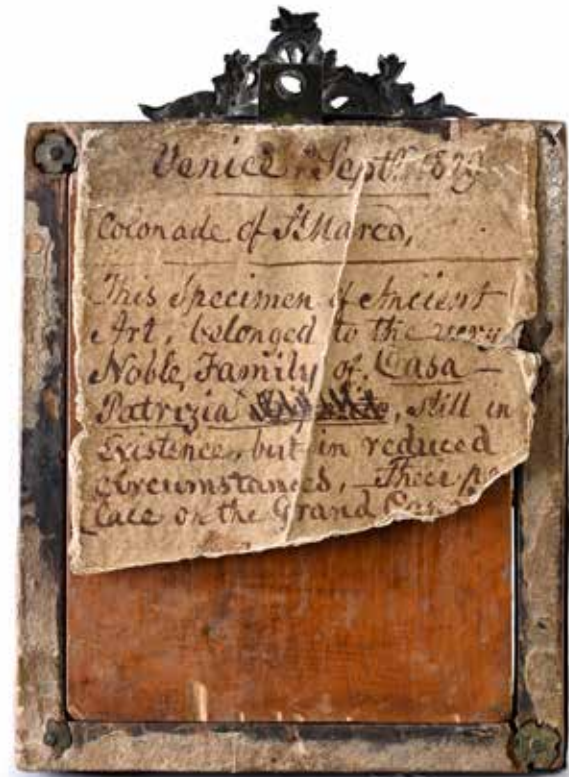 Venice Septr. 1829
Colonade of St Marco,
This Specimen of Ancient
Art, belonged to the very
Noble Family of Casa -
Patrizia , still in
Existence, but in reduced
circumstances, - Their pa
lace on the Grand Cana